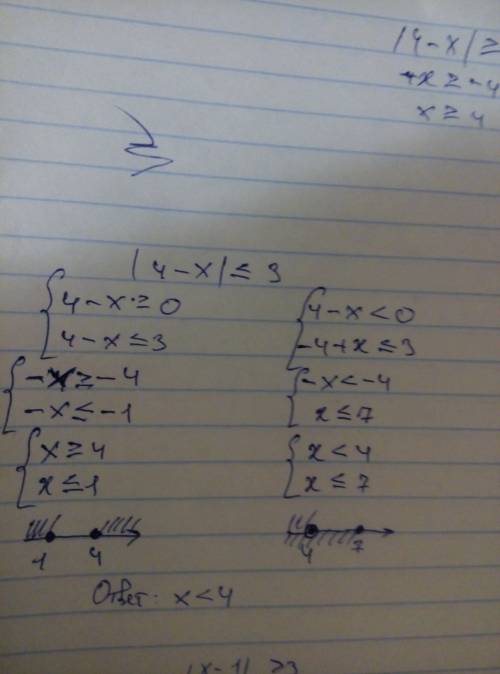 |4-x| ≥
-x ≥ -4
x ≥ 4
|4-x| ≤ 3
4-x ≥ 0
4-x ≤ 3
-x ≥ -4
-x ≤ -1
x ≥ 4
x ≤ 1
1 4
4-x < 0
-4+x ≤ 3
-x < -4
x ≤ 7
x < 4
x ≤ 7
4 7
Ответ: x < 4
|x-1| ≥ 3